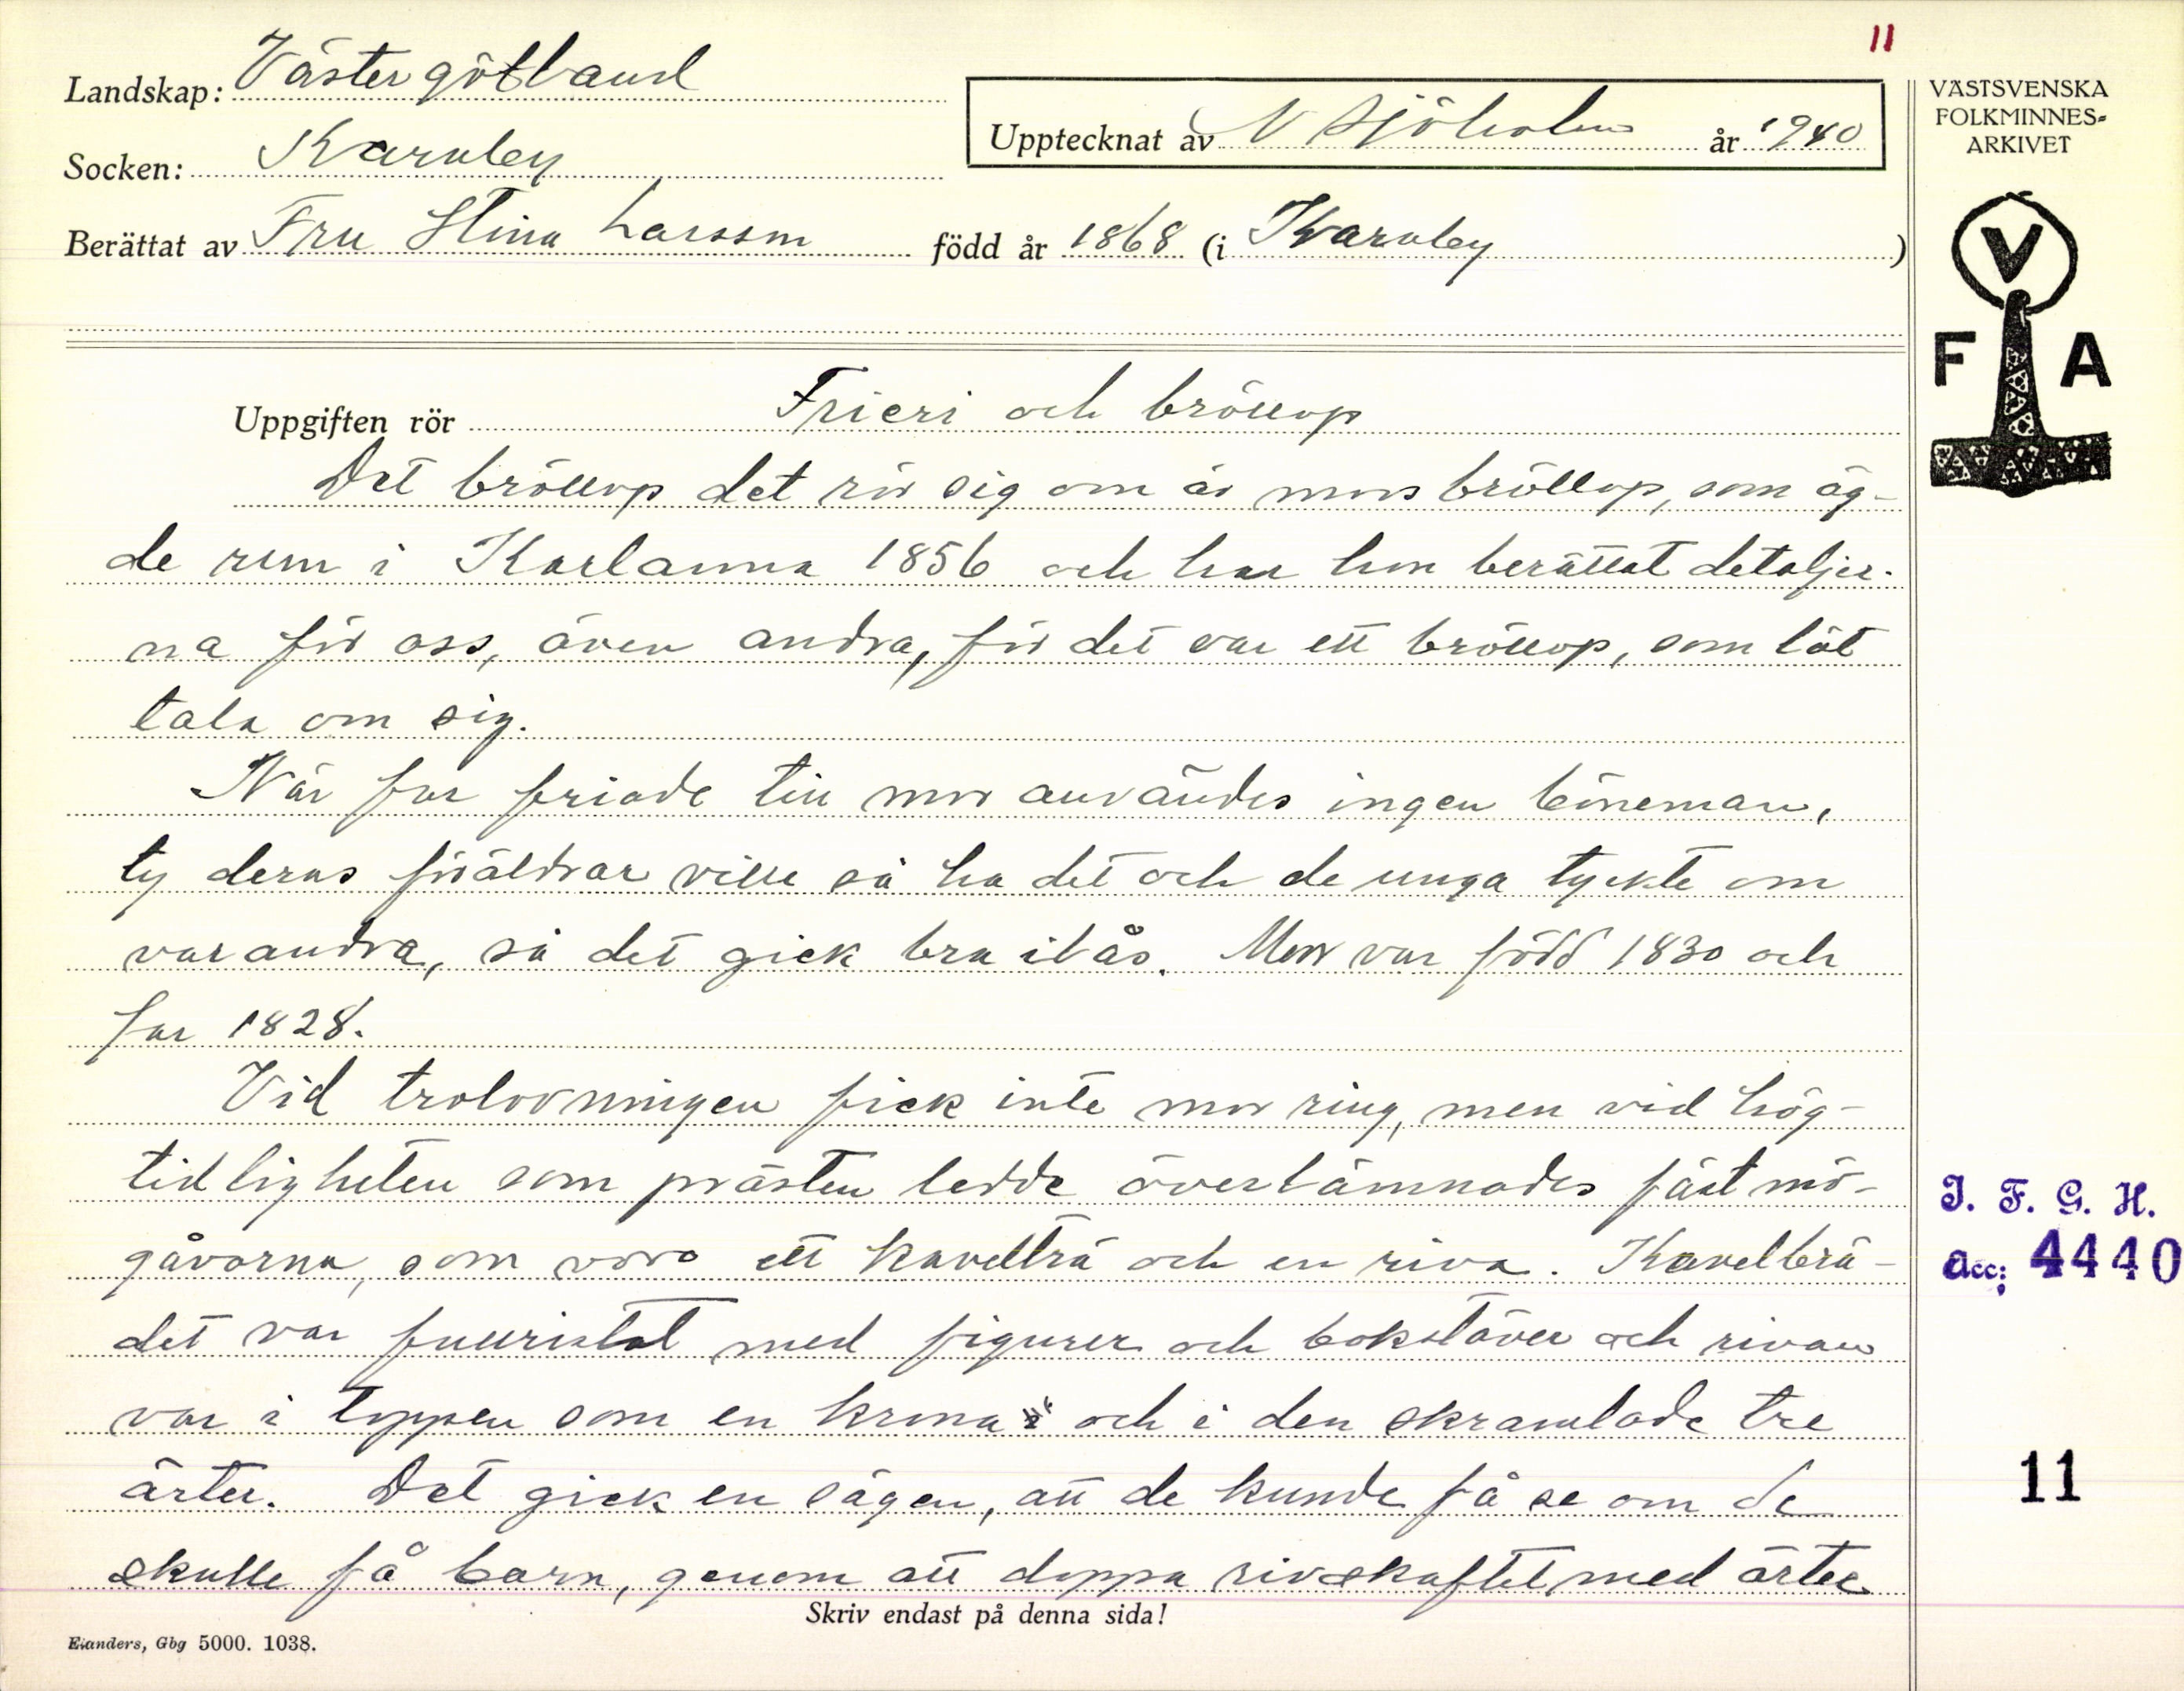 11
Landskap: Västergötland
Upptecknat av N Sjöholm år 1940
VÄSTSVENSKA
FOLKMINNES=
ARKIVET
Socken: Karleby
Berättat av Fru Stina Larsson född år 1868 (i Karleby)
V
F A
Uppgiften rör Frieri och bröllop
Det bröllop det rör sig om är mors bröllop, som äg-
de rum i 1856 och har hon berättat detaljer-
na för oss, även andra, för det var ett bröllop, som lät
tala om sig.
När far friade till mor användes ingen böneman,
ty deras föräldrar ville så ha det och de unga tyckte om
varandra, så det gick bra ibås. Mor var född 1830 och
far 1828.
Vid trolovningen fick inte mor ring, men vid hög-
tidligheten som prästen ledde överlämnades fästmö-
gåvorna, som voro ett kavelträ och en riva. Kavelbrä-
det var fullristat med figurer och bokstäver och rivan
var i toppen som en krona och i den skramlade tre
ärter. Det gick en sägen, att de kunde få se om de
skulle få barn, genom att doppa rivskaftet med ärter
J. F. G. H.
Acc: 4440
11
Skriv endast på denna sida!
Elanders, Gbg 5000. 1038.